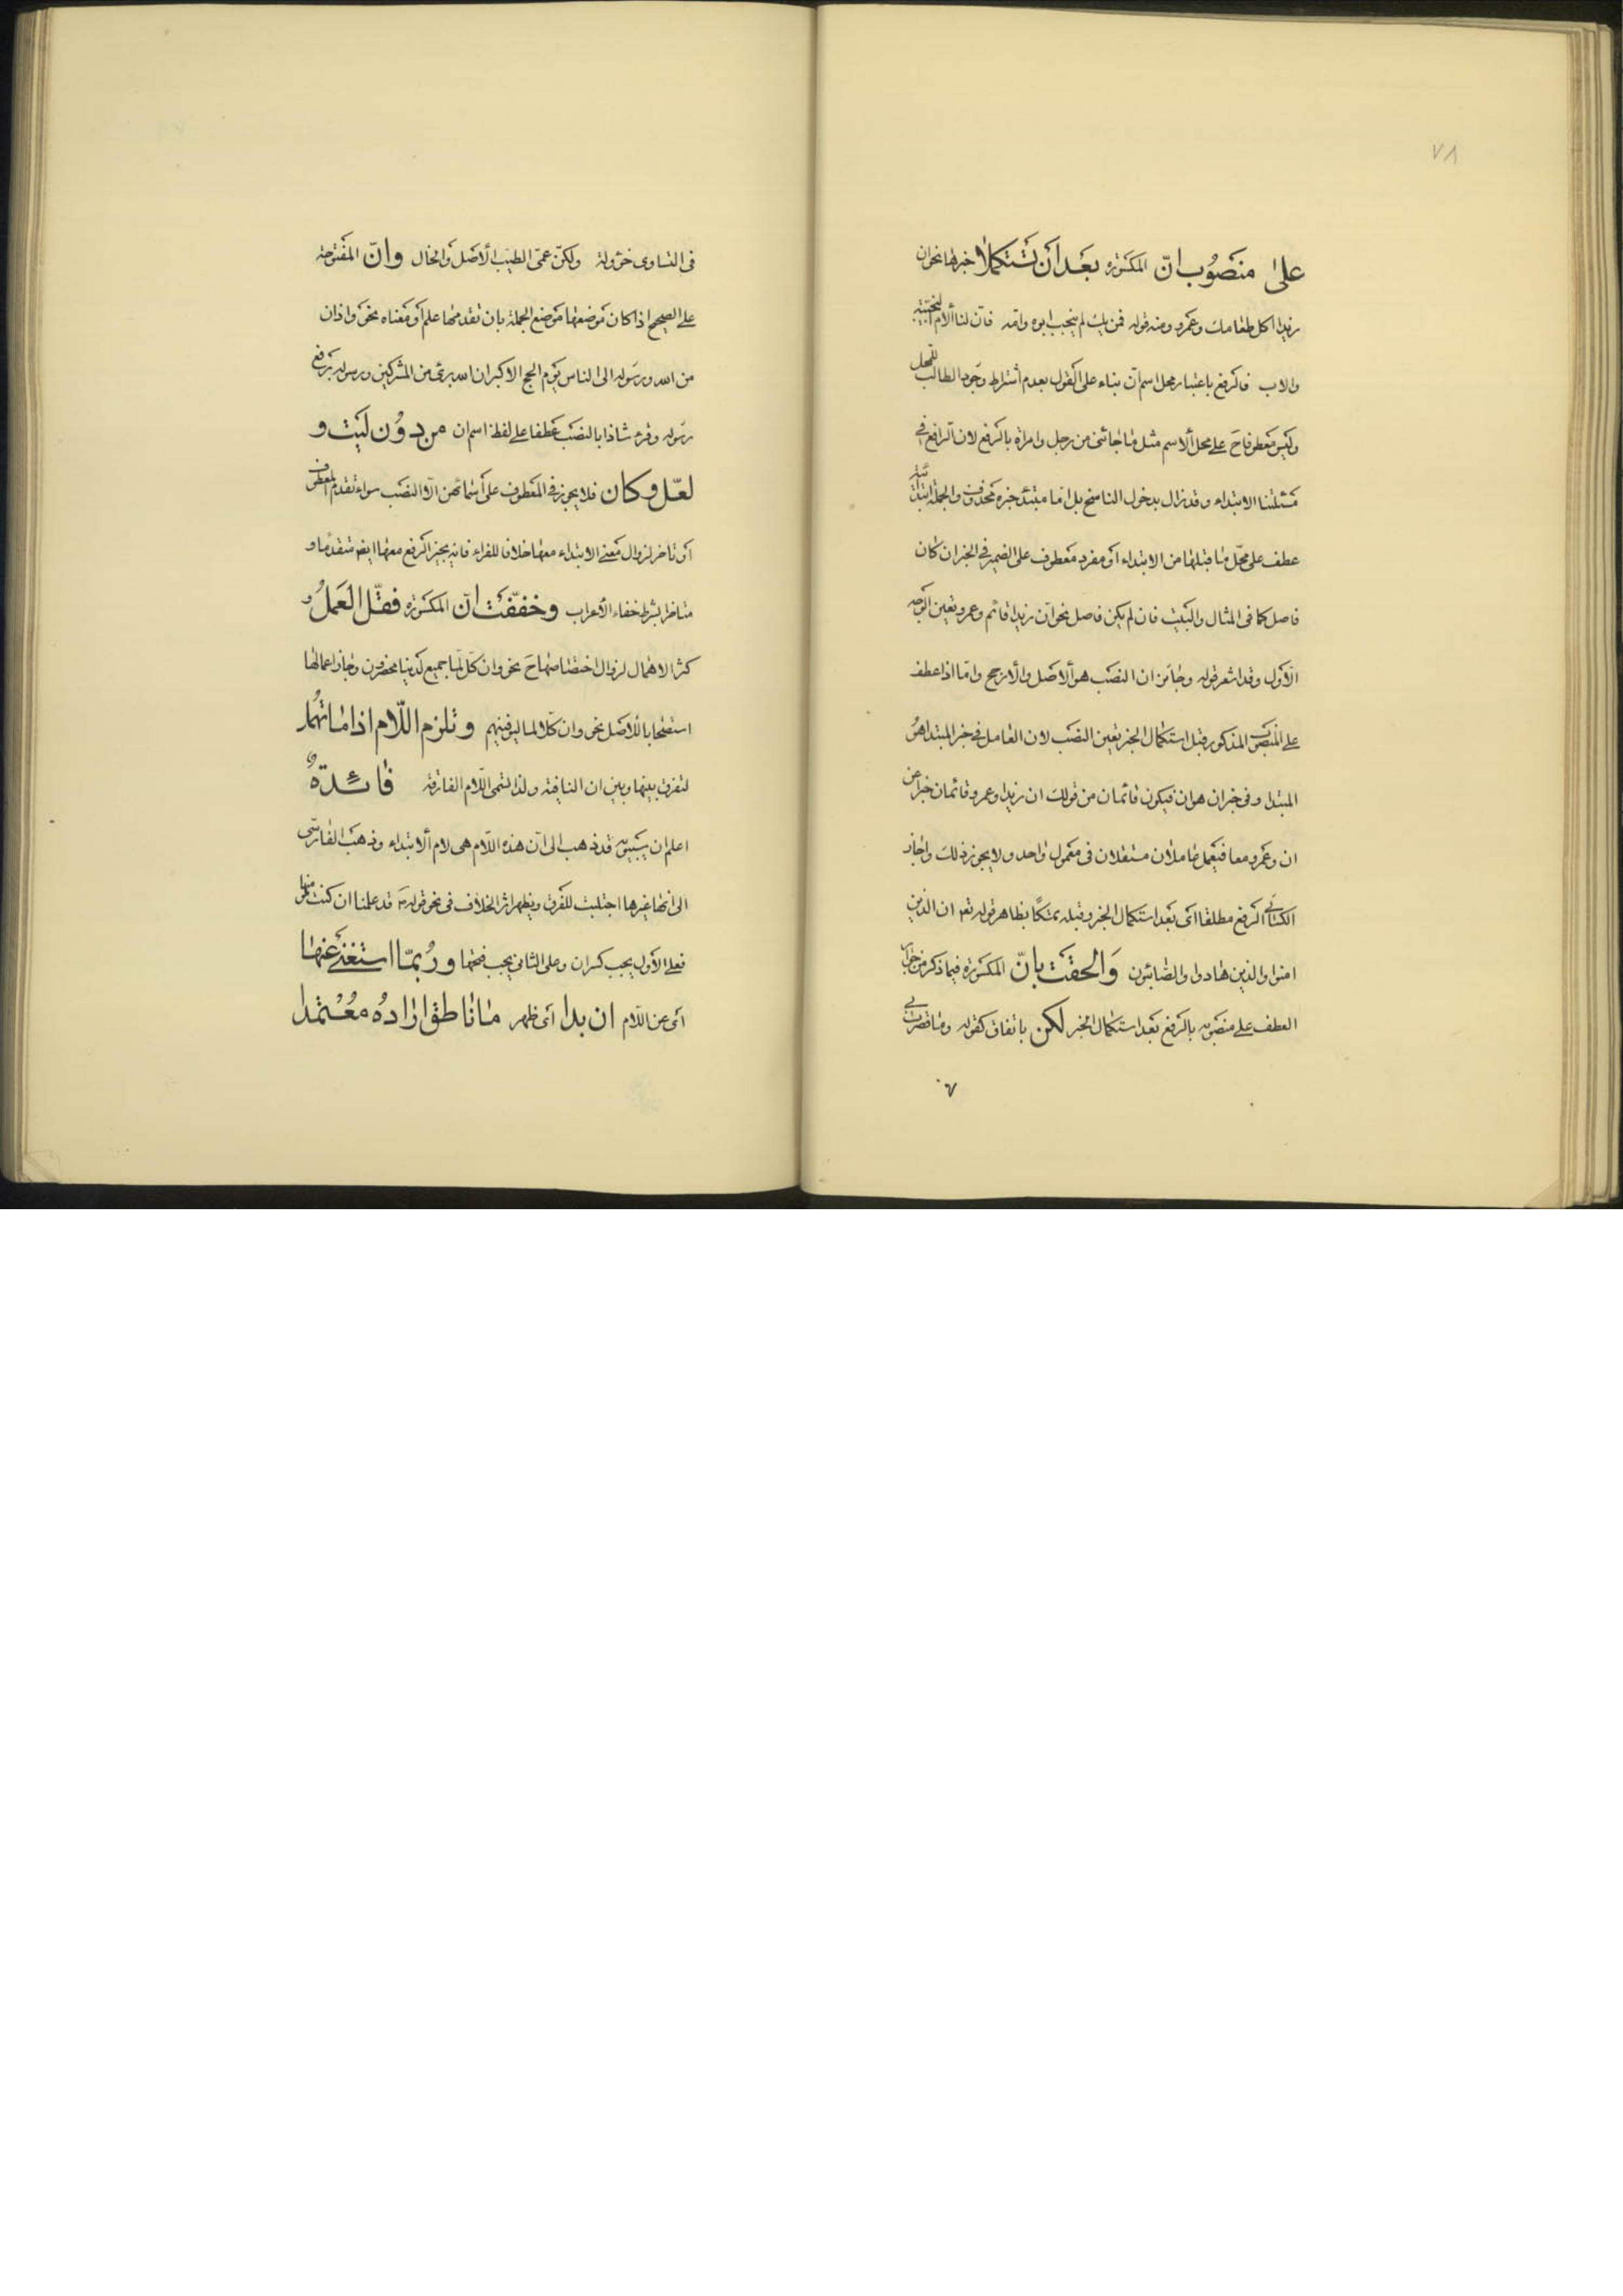 ٧٨
على منصوب انّ المكسورة بعد ان تستكملا خبرها نحو ان
زيدا اكل طعامك وعمرو ومنه قوله فمن يك لم ينجب ابوه وامه فان لنا الام النجيبة
والاب فالرفع باعتبار محل اسم انّ بناء على القول بعدم اشتراط وجود الطالب للمحل
وليس معطوفا ح على محل الاسم مثل ما جائنى من رجل وامراة بالرفع لان الرافع فى
مسئلتنا الابتداء وقد زال بدخول الناسخ بل اما مبتدء خبره محذوف والجملة ابتدائية
عطف على محل ما قبلها من الابتداء او مفرد معطوف على الضمير فى الخبر ان كان
فاصل كما فى المثال والبيت فان لم يكن فاصل نحو انّ زيدا قائم وعمرو تعين الوجه
الاول وقد اشعر قوله وجائز ان النصب هو الاصل والارجح واما اذا عطف
على المنصوب المذكور قبل استكمال الخبر تعين النصب لان العامل فى خبر المبتدا هو
المبتدا وفى خبر ان هو ان فيكون قائمان من قولك ان زيدا وعمرو قائمان خبرا عن
ان وعمرو معا فيعمل عاملان مستقلان فى معمول واحد ولا يجوز ذلك واجاز
الكسائى الرفع مطلقا اى بعد استكمال الخبر وقبله تمسكا بظاهر قوله تعم ان الذين
امنوا والذين هادوا والصابئون وَالحقت بانّ المكسورة فيما ذكر من جواز
العطف على منصوبه بالرفع بعد استكمال الخبر لكن باتفاق كقوله وما قصرت بى
فى التسامى خؤولة ولكنّ عمى الطيب الاصل والخال وانّ المفتوحة
على الصحيح اذا كان موضعها موضع الجملة بان تقدمها علم او معناه نحو واذان
من الله ورسوله الى الناس يوم الحج الاكبر ان الله برئ من المشركين ورسوله برفع
رسوله وقرء شاذا بالنصب عطفا على لفظ اسم ان من دون ليت و
لعلّ وكان فلا يجوز فى المعطوف على اسمائهن الا النصب سواء تقدم المعطوف
او تاخر لزوال معنى الابتداء معها خلافا للفراء فانه يجيز الرفع معها ايض متقدما و
متاخرا بشرط خفاء الاعراب وخففت انّ المكسورة فقلّ العملُ و
كثر الاهمال لزوال اختصاصها ح نحو وان كل لما جميع لدينا محضرون وجاز اعمالها
استصحابا للاصل نحو وان كلا لما ليوفينهم وتلزم اللّام اذا ما تهمل
لتفرق بينها وبين ان النافية ولذا تسمى اللام الفارقة فائدةٌ
اعلم ان سيبويه قد ذهب الى ان هذه اللّام هى لام الابتداء وذهب الفارسى
الى انها غيرها اجتلبت للفرق ويظهر اثر الخلاف فى نحو قوله قد علمنا ان كنت لمؤمنا
فعلى الاول يجب كسر ان وعلى الثانى يجب فتحها ورُبمّا استغنى عنها
اى عن اللّام ان بدا اى ظهر ما ناطق ارادهُ معُتمدا